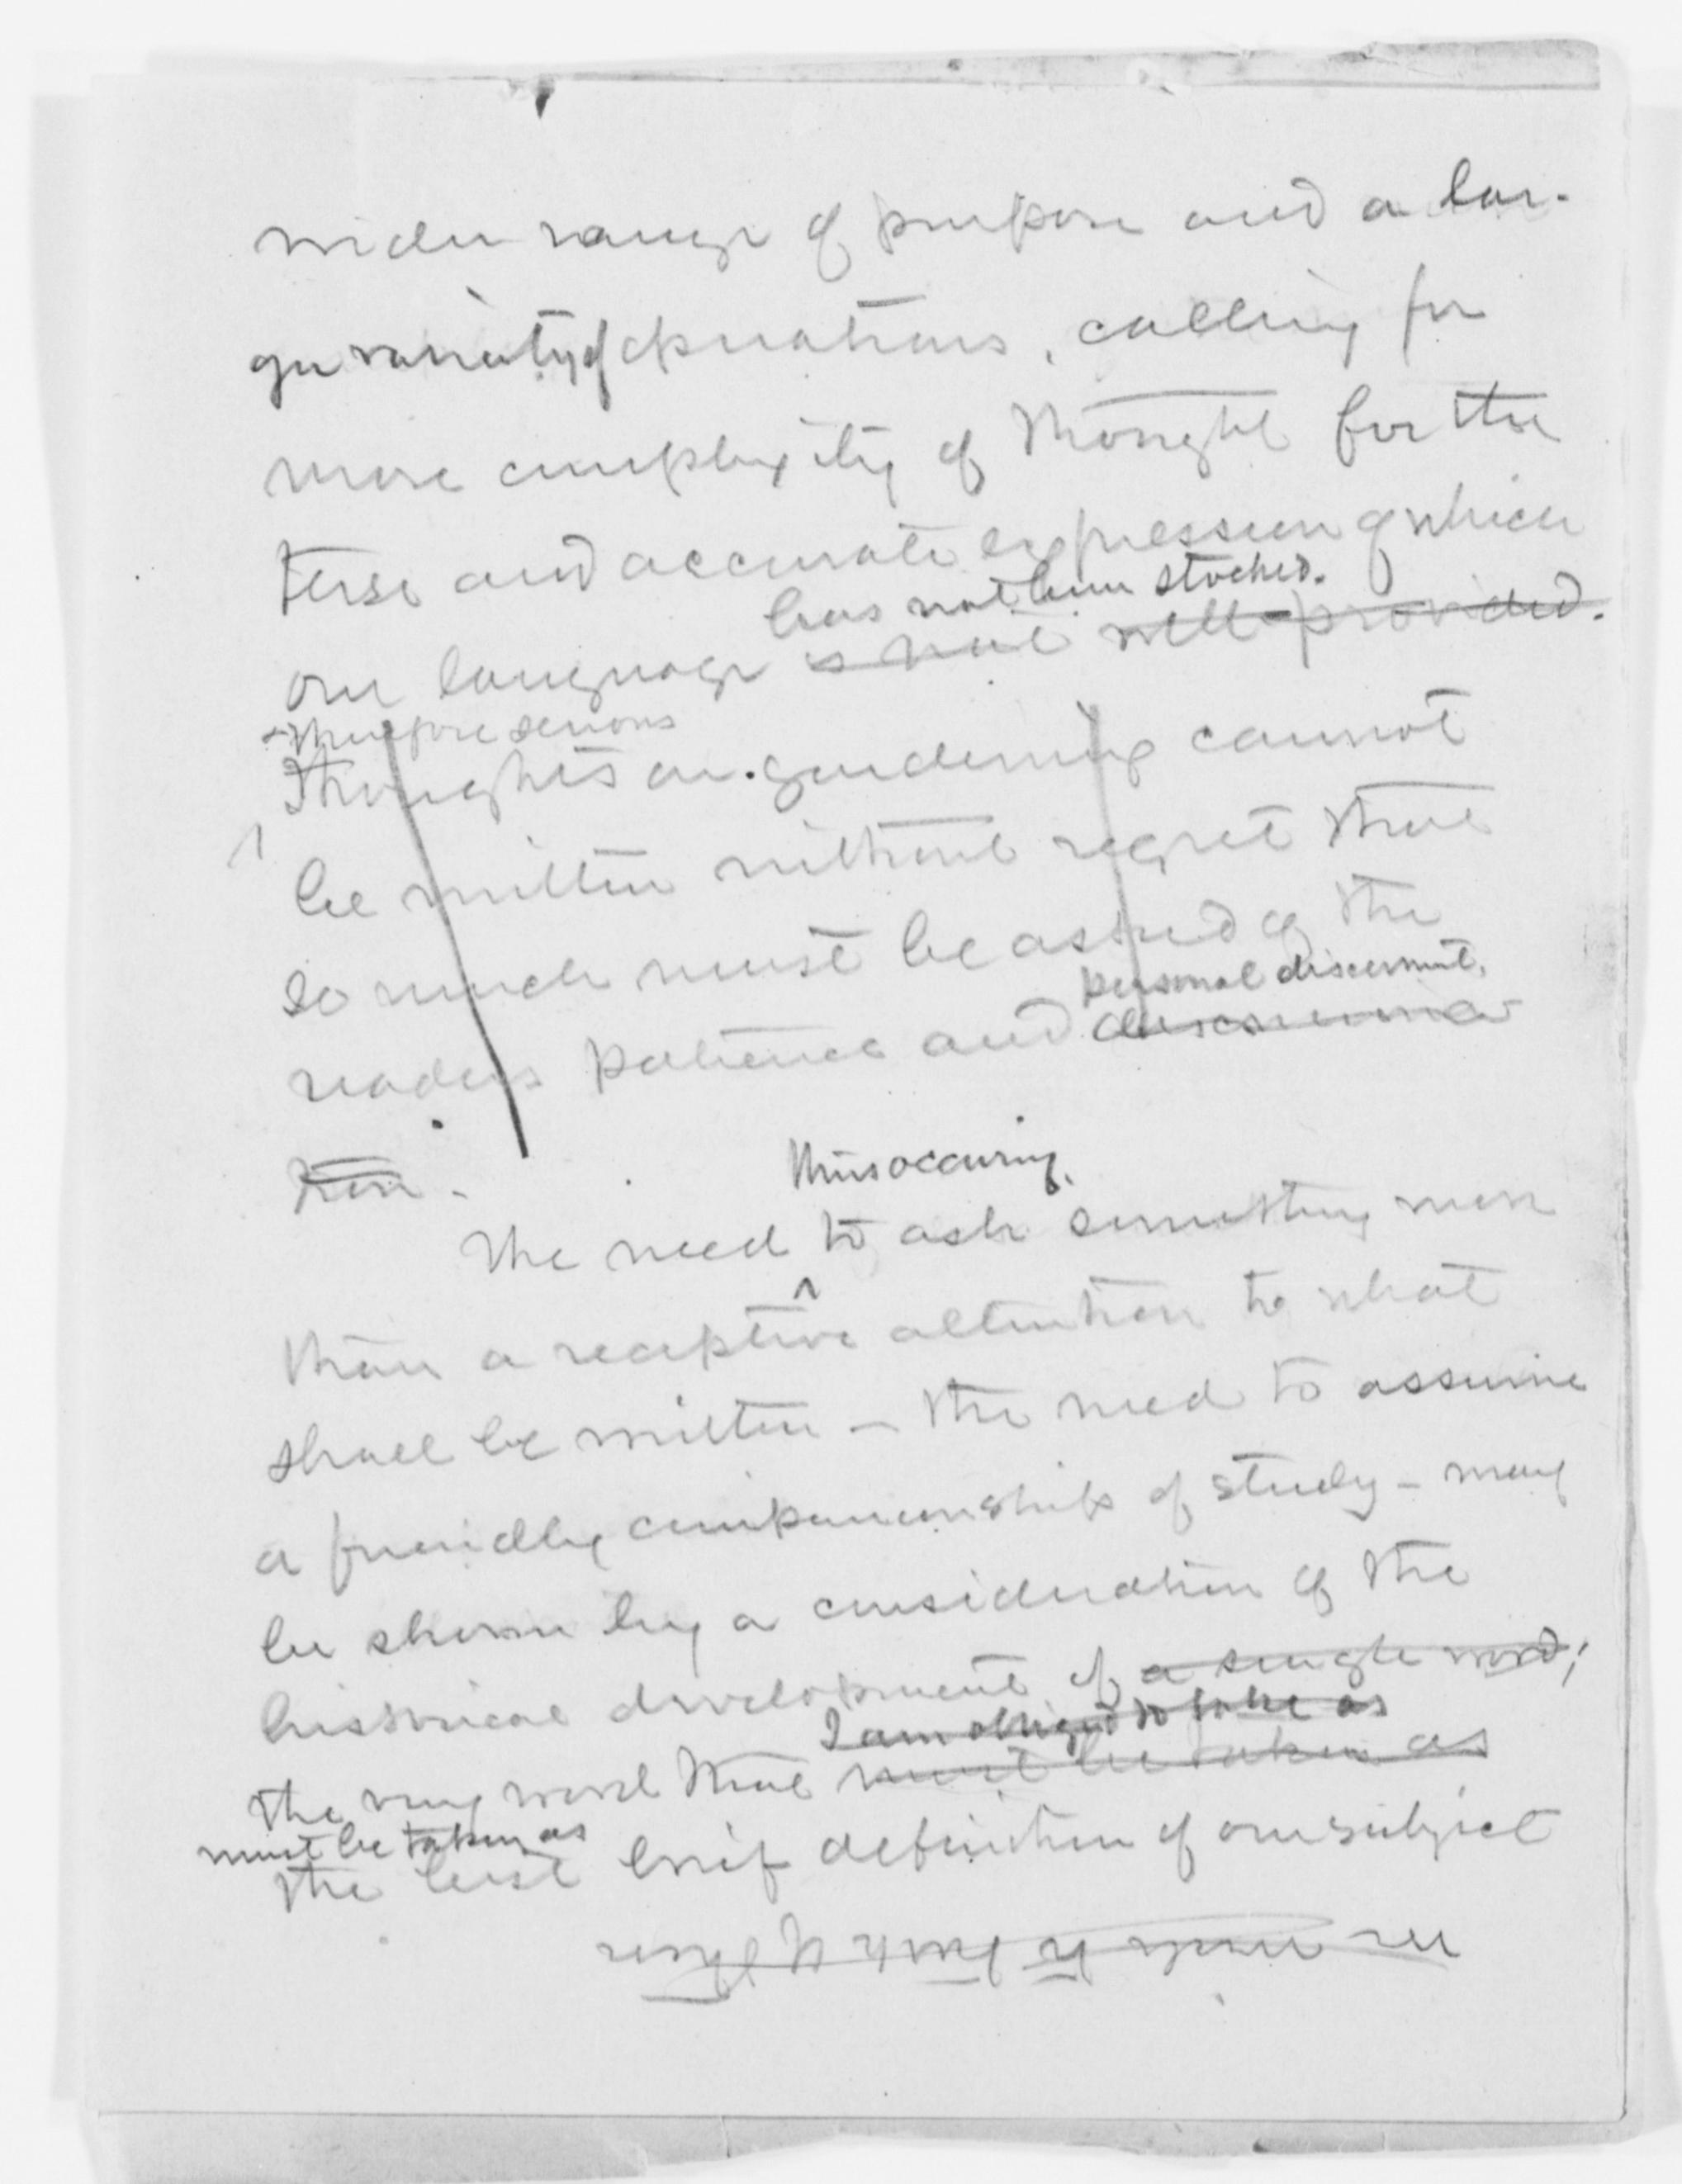 wider range of purpose and a lar-
ger variety of operations, calling for
more complexity of thought for the
terse and accurate expression of which
has not been stocked.
our language is not well provided.
Therefore serious
Thoughts on gardening cannot
be written without regret that
so much must be asked of the
personal discernment.
readers patience and discrimina-
tion.
thus occuring
The need to ask something more
than a receptive attention to what
shall be written - the need to assume
a friendly companionship of study - may
be shown by a consideration of the
historical development of a single word;
I am obliged to take as
the very word that must be taken as
must be taken as
the best brief definition of our subject